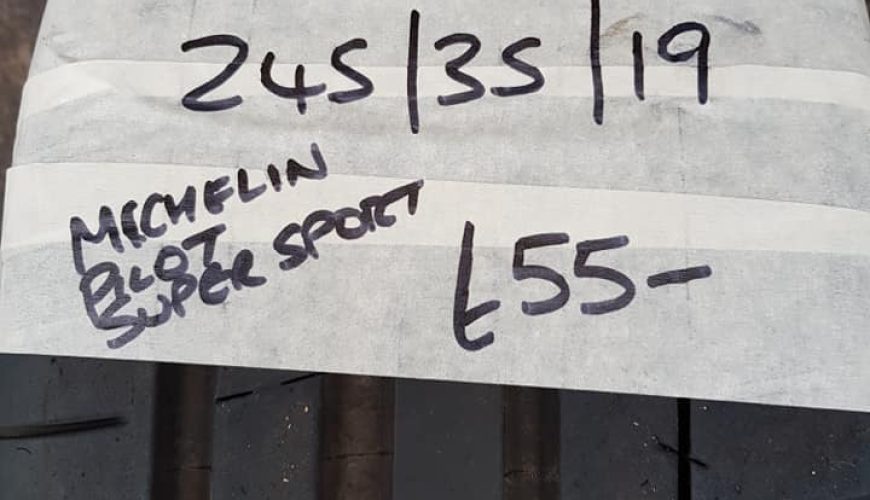 245/35/19
MICHELIN
PILOT
SUPER SPORT
£55-